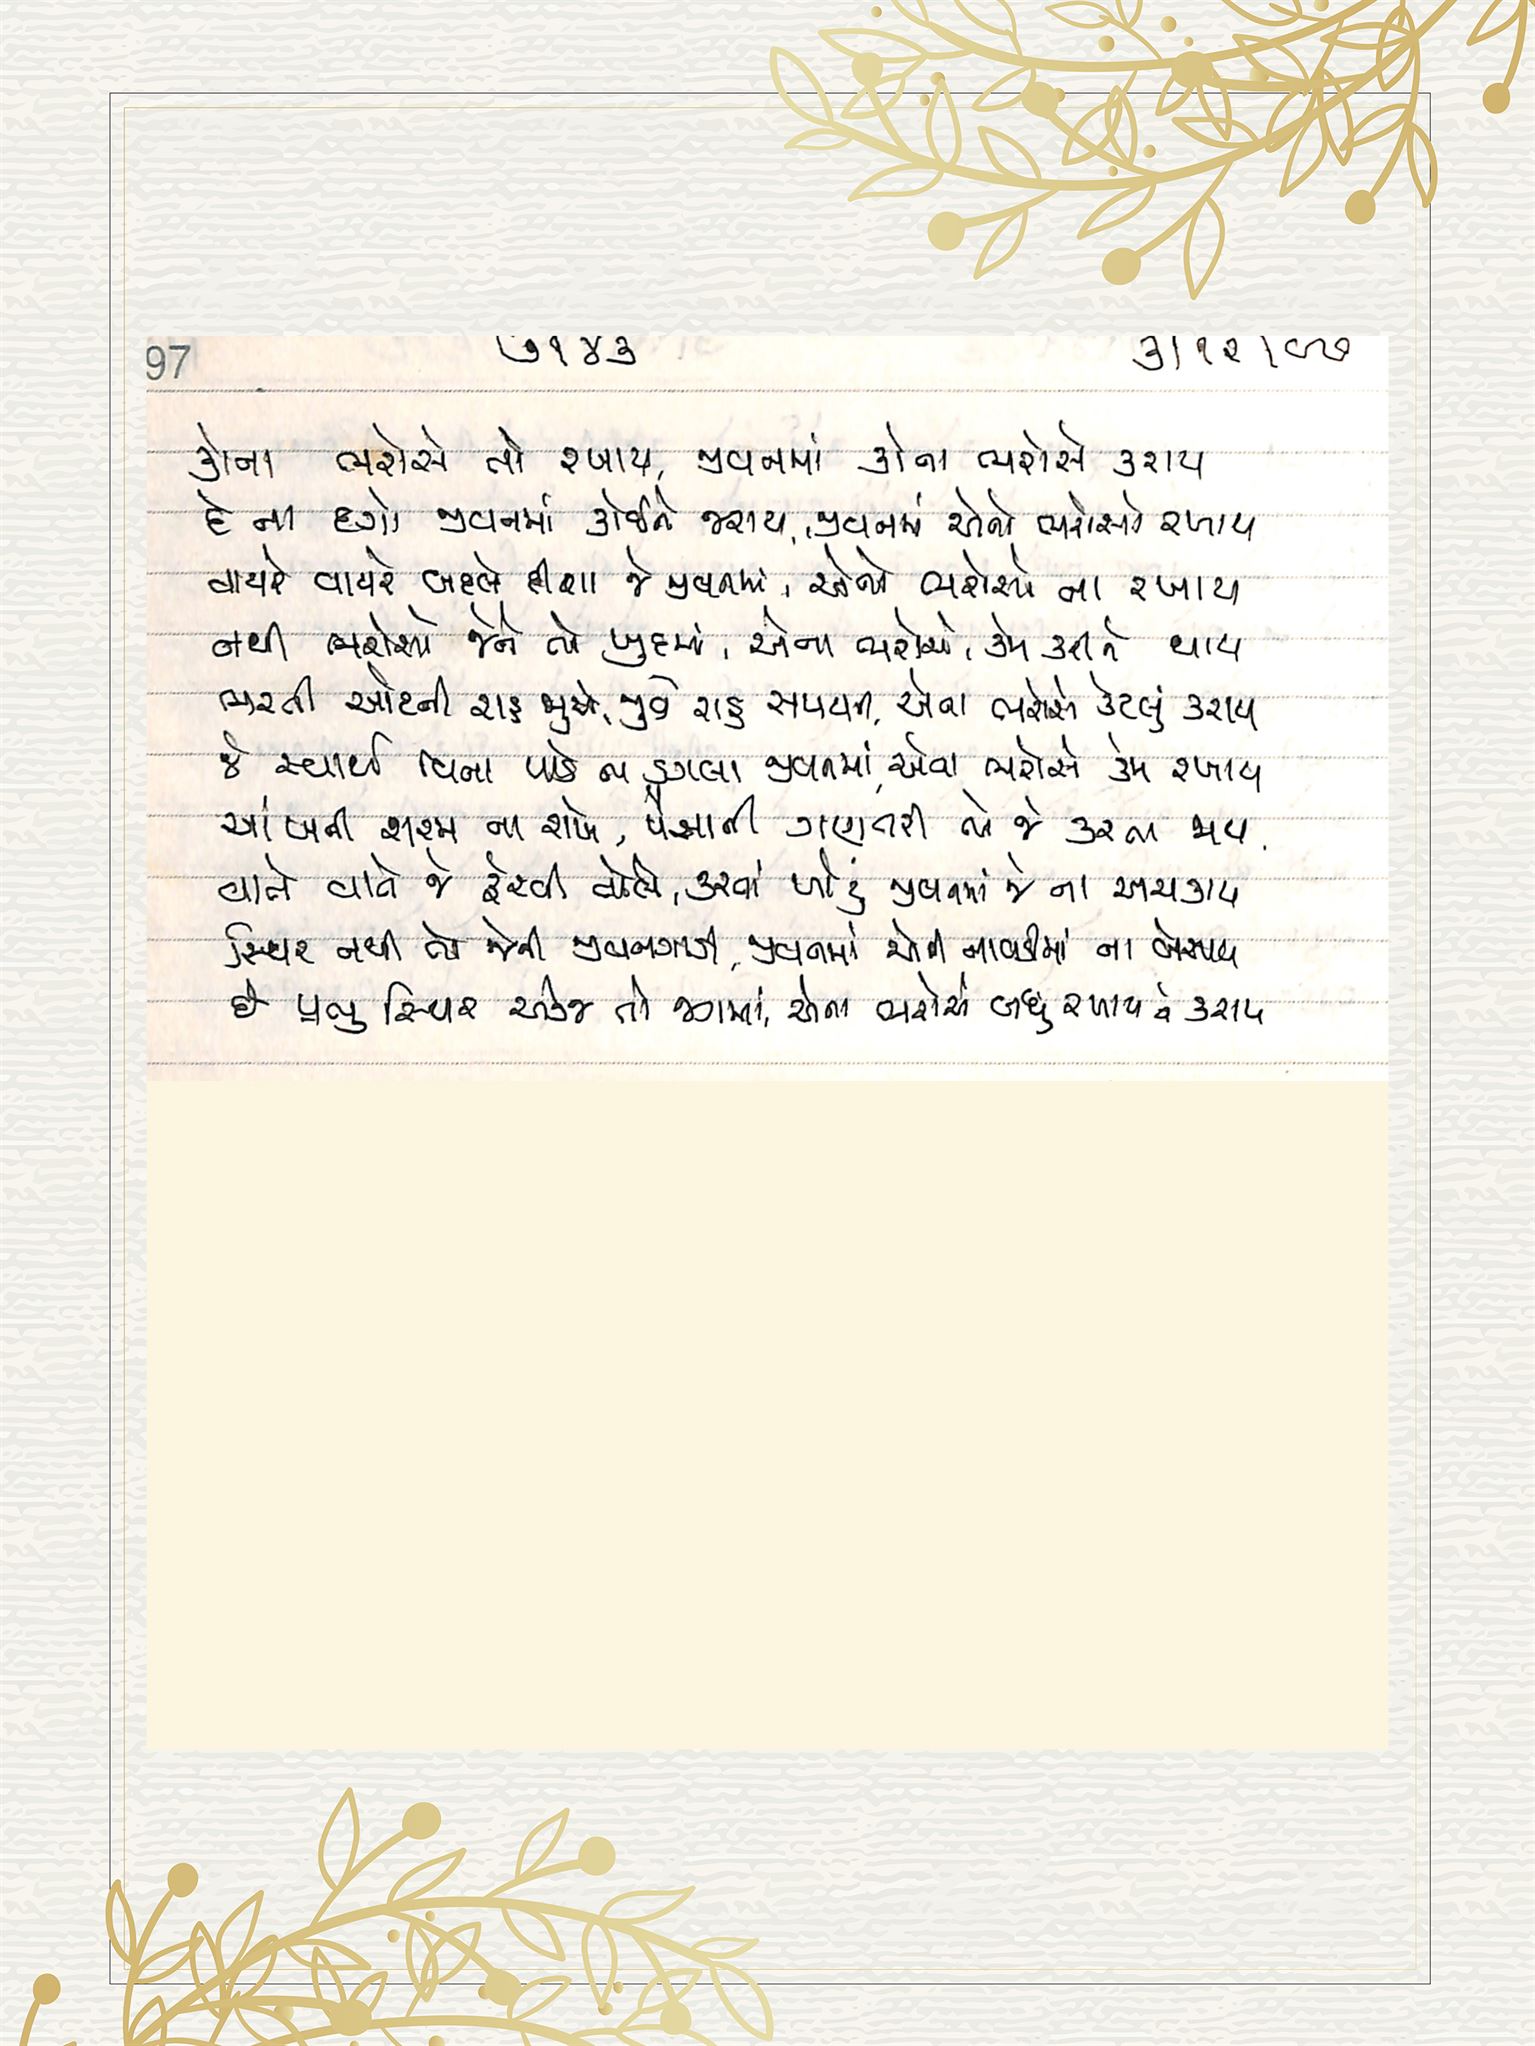 97 ૭૧૪૩ ૩/૧૨/૯૭
કોના ભરોસે તો રખાય, જીવનમાં કોના ભરોસે કરાય
દે ના દગો જીવનમાં કોઈને જરાય, જીવનમાં એનો ભરોસો રખાય
વાયરે વાયરે બદલે દીશા જે જીવનમાં, એનો ભરોસો ના રખાય
નથી ભરોસો જેને તો ખુદમાં, એના ભરોસે, કેમ કરીને થાય
ભરતી ઓટની રાહ જુએ, જુવે રાહુ સમયની, એવા ભરોસે કેટલું કરાય
જે સ્વાર્થ વિના પાડે ના ડગલા જીવનમાં, એવા ભરોસે કેમ રખાય
આંખની શરમ ના રાખે, પૈસાની ગણતરી તો જે કરતા જાય.
વાતે વાતે જે ફેરવી તોળે, કરવાં ખોટું જીવનમાં જે ના અચકાય
સ્થિર નથી તો જેની જીવનગાડી, જીવનમાં એની નાવડીમાં ના બેસાય
છે પ્રભુ સ્થિર એકજ તો જગમાં, એના ભરોસે બધું રખાય ને કરાય